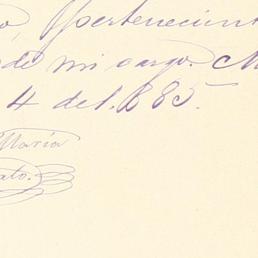 pertenecient
de mi cargo. M
4 del.885.
María
ato.